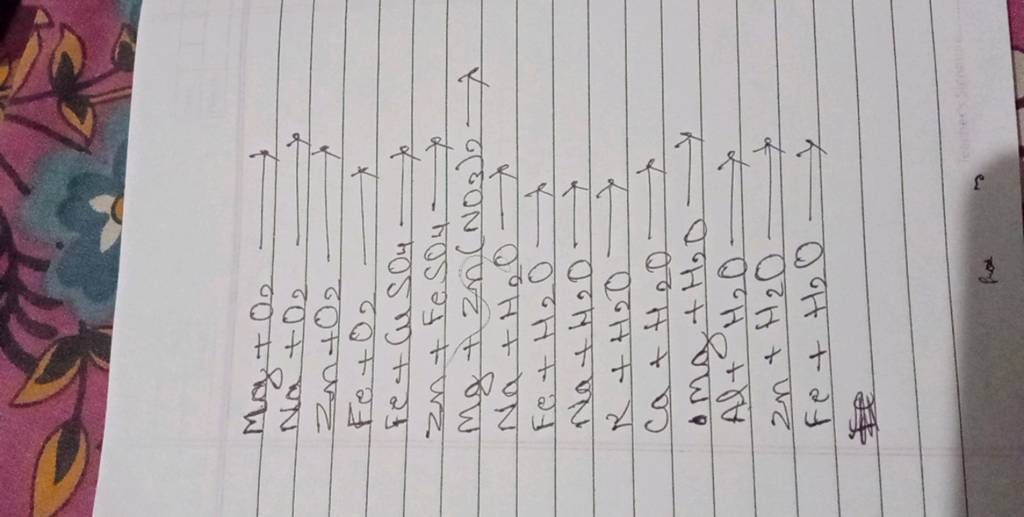 Mg + O2 →
Na + O2 →
Zn + O2 →
Fe + O2 →
Fe + CuSO4 →
Zn + FeSO4 →
Mg + Zn(NO3)2 →
Na + H2O →
Fe + H2O →
Na + H2O →
K + H2O →
Ca + H2O →
Mg + H2O →
Al + H2O →
Zn + H2O →
Fe + H2O →